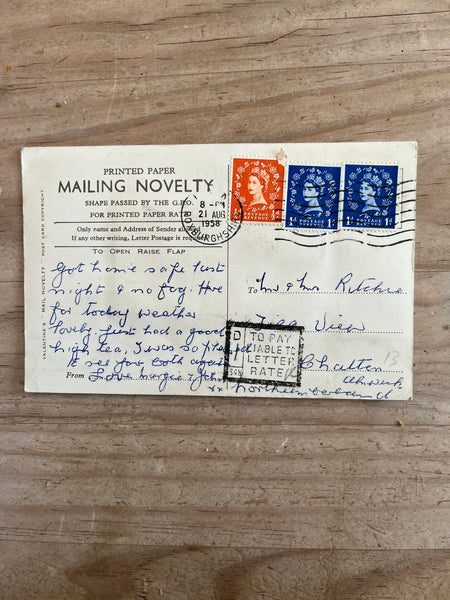 PRINTED PAPER
MAILING NOVELTY
SHAPE PASSED BY THE G.P.O.
FOR PRINTED PAPER RATE
Only name and Address of Sender al
If any other writing, Letter Postage is requi
TO OPEN RAISE FLAP
VALENTINE'S MAIL NOVELTY POST CARD COPYRIGHT
8-PM
21 AUG
1958
ROXBURGHSHI
½d POSTAGE REVENUE ½d
1d POSTAGE REVENUE 1d
1d POSTAGE REVENUE 1d
Got home safe last
night & no fog. Here
for today weather
lovely just had a good
high tea, I was so pleased
to see you both again
From Love margie & John
xx
To Mr & Mrs Ritchie
View
Chatton
Alnwick
Northumberland
13
D
TO PAY
LIABLE TO
LETTER
RATE